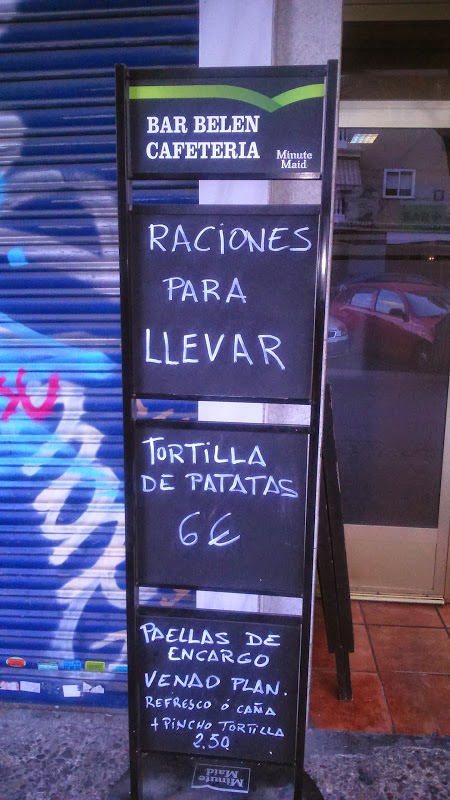 BAR BELEN
CAFETERIA
Minute
Maid
RACIONES
PARA
LLEVAR
TORTILLA
DE PATATAS
6€
PAELLAS DE
ENCARGO
VENAO PLAN.
REFRESCO Ó CAÑA
+ PINCHO TORTILLA
2.50
Minute
Maid